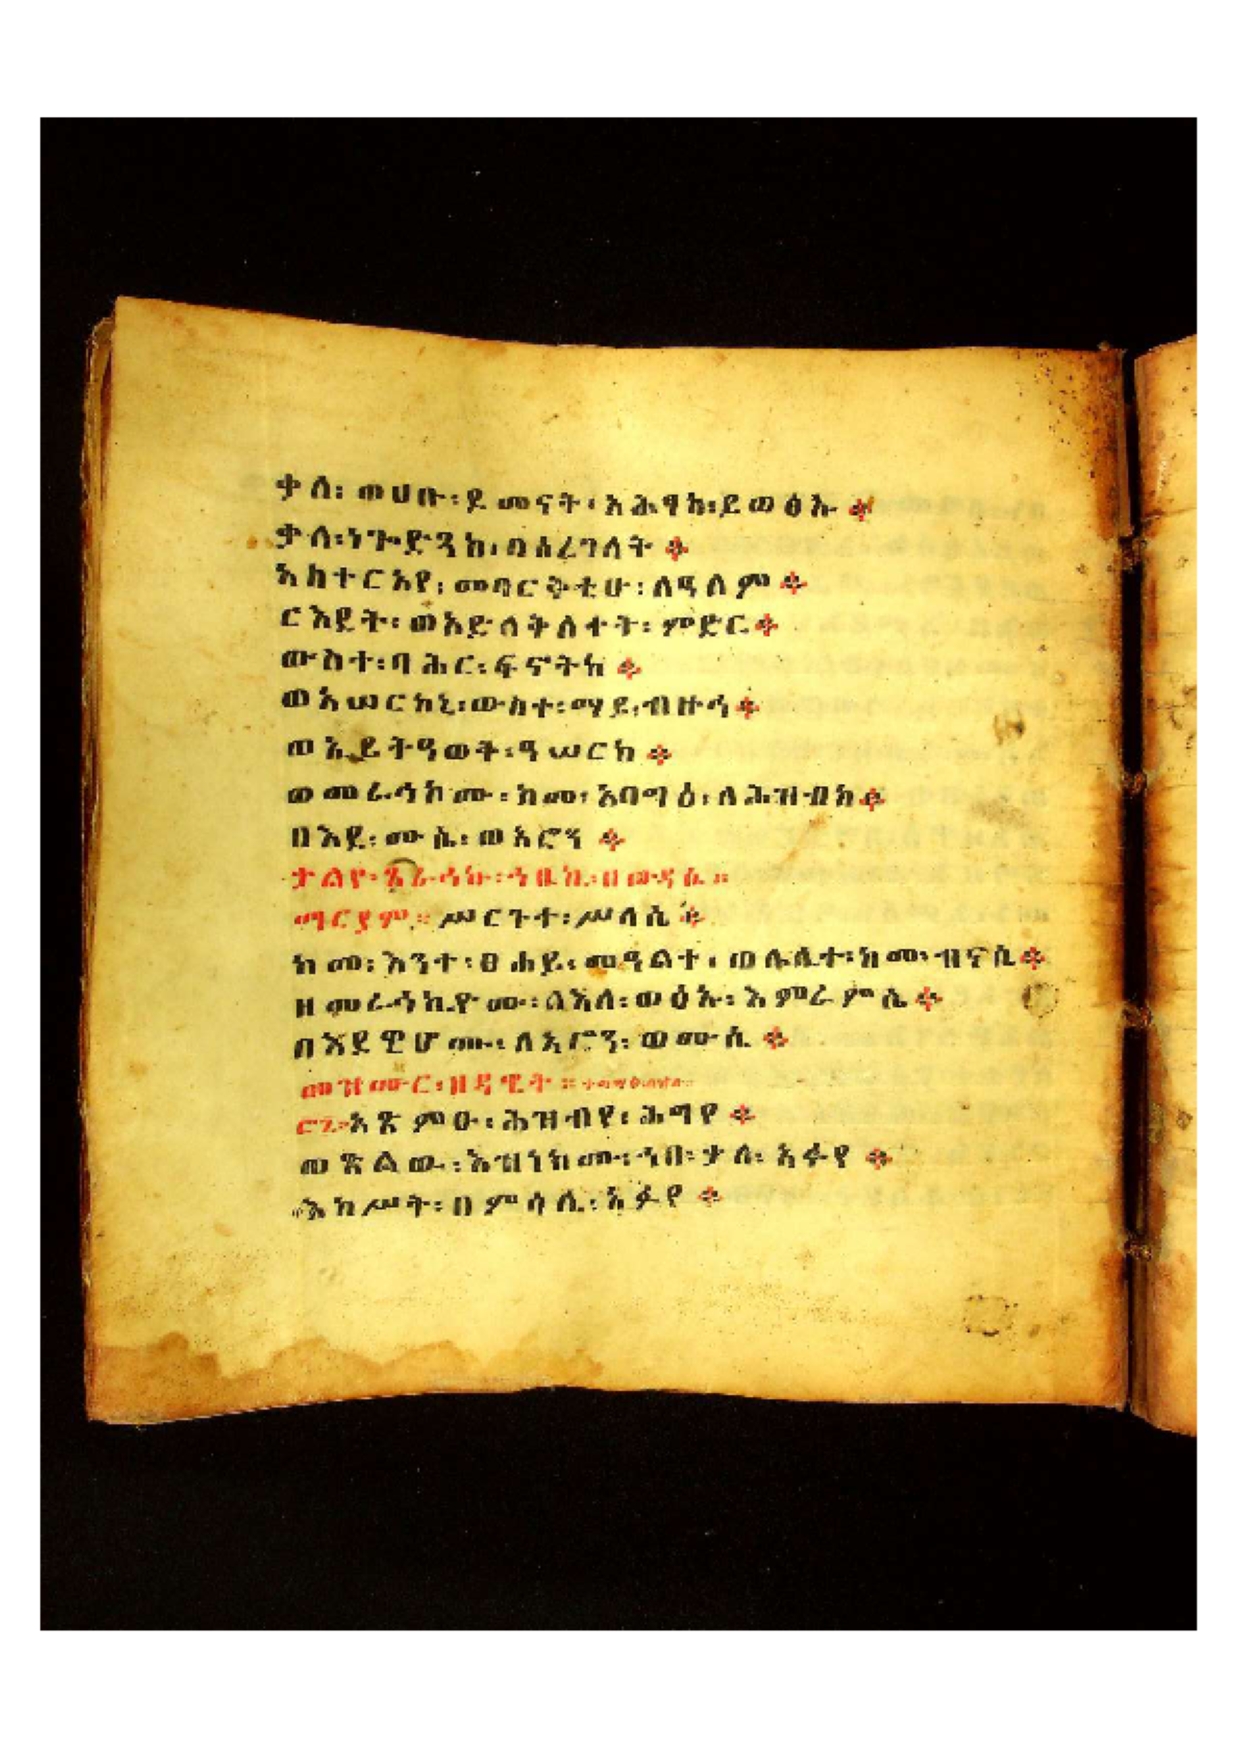 ቃለ፡ ወሀቡ፡ ደመናት፡ አሕፃከ፡ ይወፅኡ ።
ቃለ፡ ነጐድጓከ፡ በሰረገላት ።
አስተርአየ፡ መባርቅቲሁ፡ ለዓለም ።
ርእየት፡ ወአድለቅለቀት፡ ምድር ።
ውስተ፡ ባሕር፡ ፍኖትከ ።
ወአሠርከኒ፡ ውስተ፡ ማይ፡ ብዙኅ ።
ወኢይትዓወቅ፡ ዓሠርከ ።
ወመራኅኮሙ፡ ከመ፡ አባግዕ፡ ለሕዝብከ ።
በእደ፡ ሙሴ፡ ወአሮን ።
ማርያም፡ ሥርጉተ፡ ሥላሴ ።
ከመ፡ እንተ፡ ፀሐይ፡ መዓልተ፡ ወሌሊተ፡ ከመ፡ ብናሴ ።
ዘመራኅኪዮሙ፡ ለእለ፡ ወፅኡ፡ እምራምሴ ።
በእደዊሆሙ፡ ለአሮን፡ ወሙሴ ።
መዝሙር፡ ዘዳዊት ።
፸፯ አጽምዑ፡ ሕዝብየ፡ ሕግየ ።
ወጽልው፡ እዝነክሙ፡ ኀበ፡ ቃለ፡ አፉየ ።
እከሥት፡ በምሳሌ፡ አፉየ ።